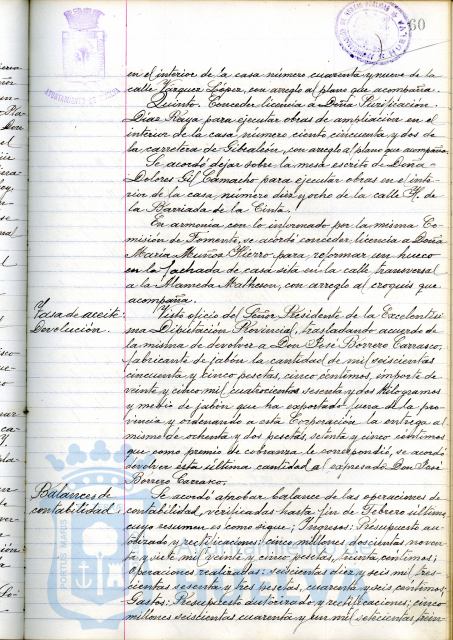 60
AYUNTAMIENTO DE HUELVA
en el interior de la casa número cuarenta y nueve de la
calle Vázquez López, con arreglo al plano que acompaña.
Quinto. Conceder licencia a Doña Purificación
Díaz Raya para ejecutar obras de ampliación en el
interior de la casa número ciento cincuenta y dos de
la carretera de Gibraleón, con arreglo al plano que acompaña
Se acordó dejar sobre la mesa escrito de Doña
Dolores Gil Camacho para ejecutar obras en el inte-
rior de la casa número diez y ocho de la calle H. de
la Barriada de la Cinta.
En armonía con lo informado por la misma Co-
misión de Fomento, se acordó conceder licencia a Doña
María Muñoz Hierro para reformar un hueco
en la fachada de casa sita en la calle transversal
a la Alameda Matheson, con arreglo al croquis que
acompaña.
Tasa de aceite:
Devolución.
Visto oficio del Señor Presidente de la Excelentísi-
ma Diputación Provincial, trasladando acuerdo de
la misma de devolver a Don José Borrero Carrasco,
fabricante de jabón la cantidad de mil seiscientas
cincuenta y cinco pesetas, cinco céntimos, importe de
veinte y cinco mil cuatrocientos sesenta y dos kilogramos
y medio de jabón que ha exportado fuera de la pro-
vincia y ordenando a esta Corporación la entrega al
mismo de ochenta y dos pesetas, setenta y cinco céntimos
que como premio de cobranza le correspondió, se acordó
devolver esta última cantidad al expresado Don José
Borrero Carrasco.
Balances de
contabilidad.
Se acordó aprobar balance de las operaciones de
contabilidad, verificadas hasta fin de Febrero último
cuyo resumen es como sigue; Ingresos: Presupuesto au-
torizado y rectificaciones: cinco millones doscientos noven-
ta y siete mil veinte y cinco pesetas, treinta céntimos;
operaciones realizadas: seiscientas diez y seis mil tres-
cientas sesenta y tres pesetas, cuarenta y seis céntimos;
Gastos: Presupuesto autorizado y rectificaciones; cinco
millones seiscientas cuarenta y un mil setecientas trein-
PORTUS MARIS